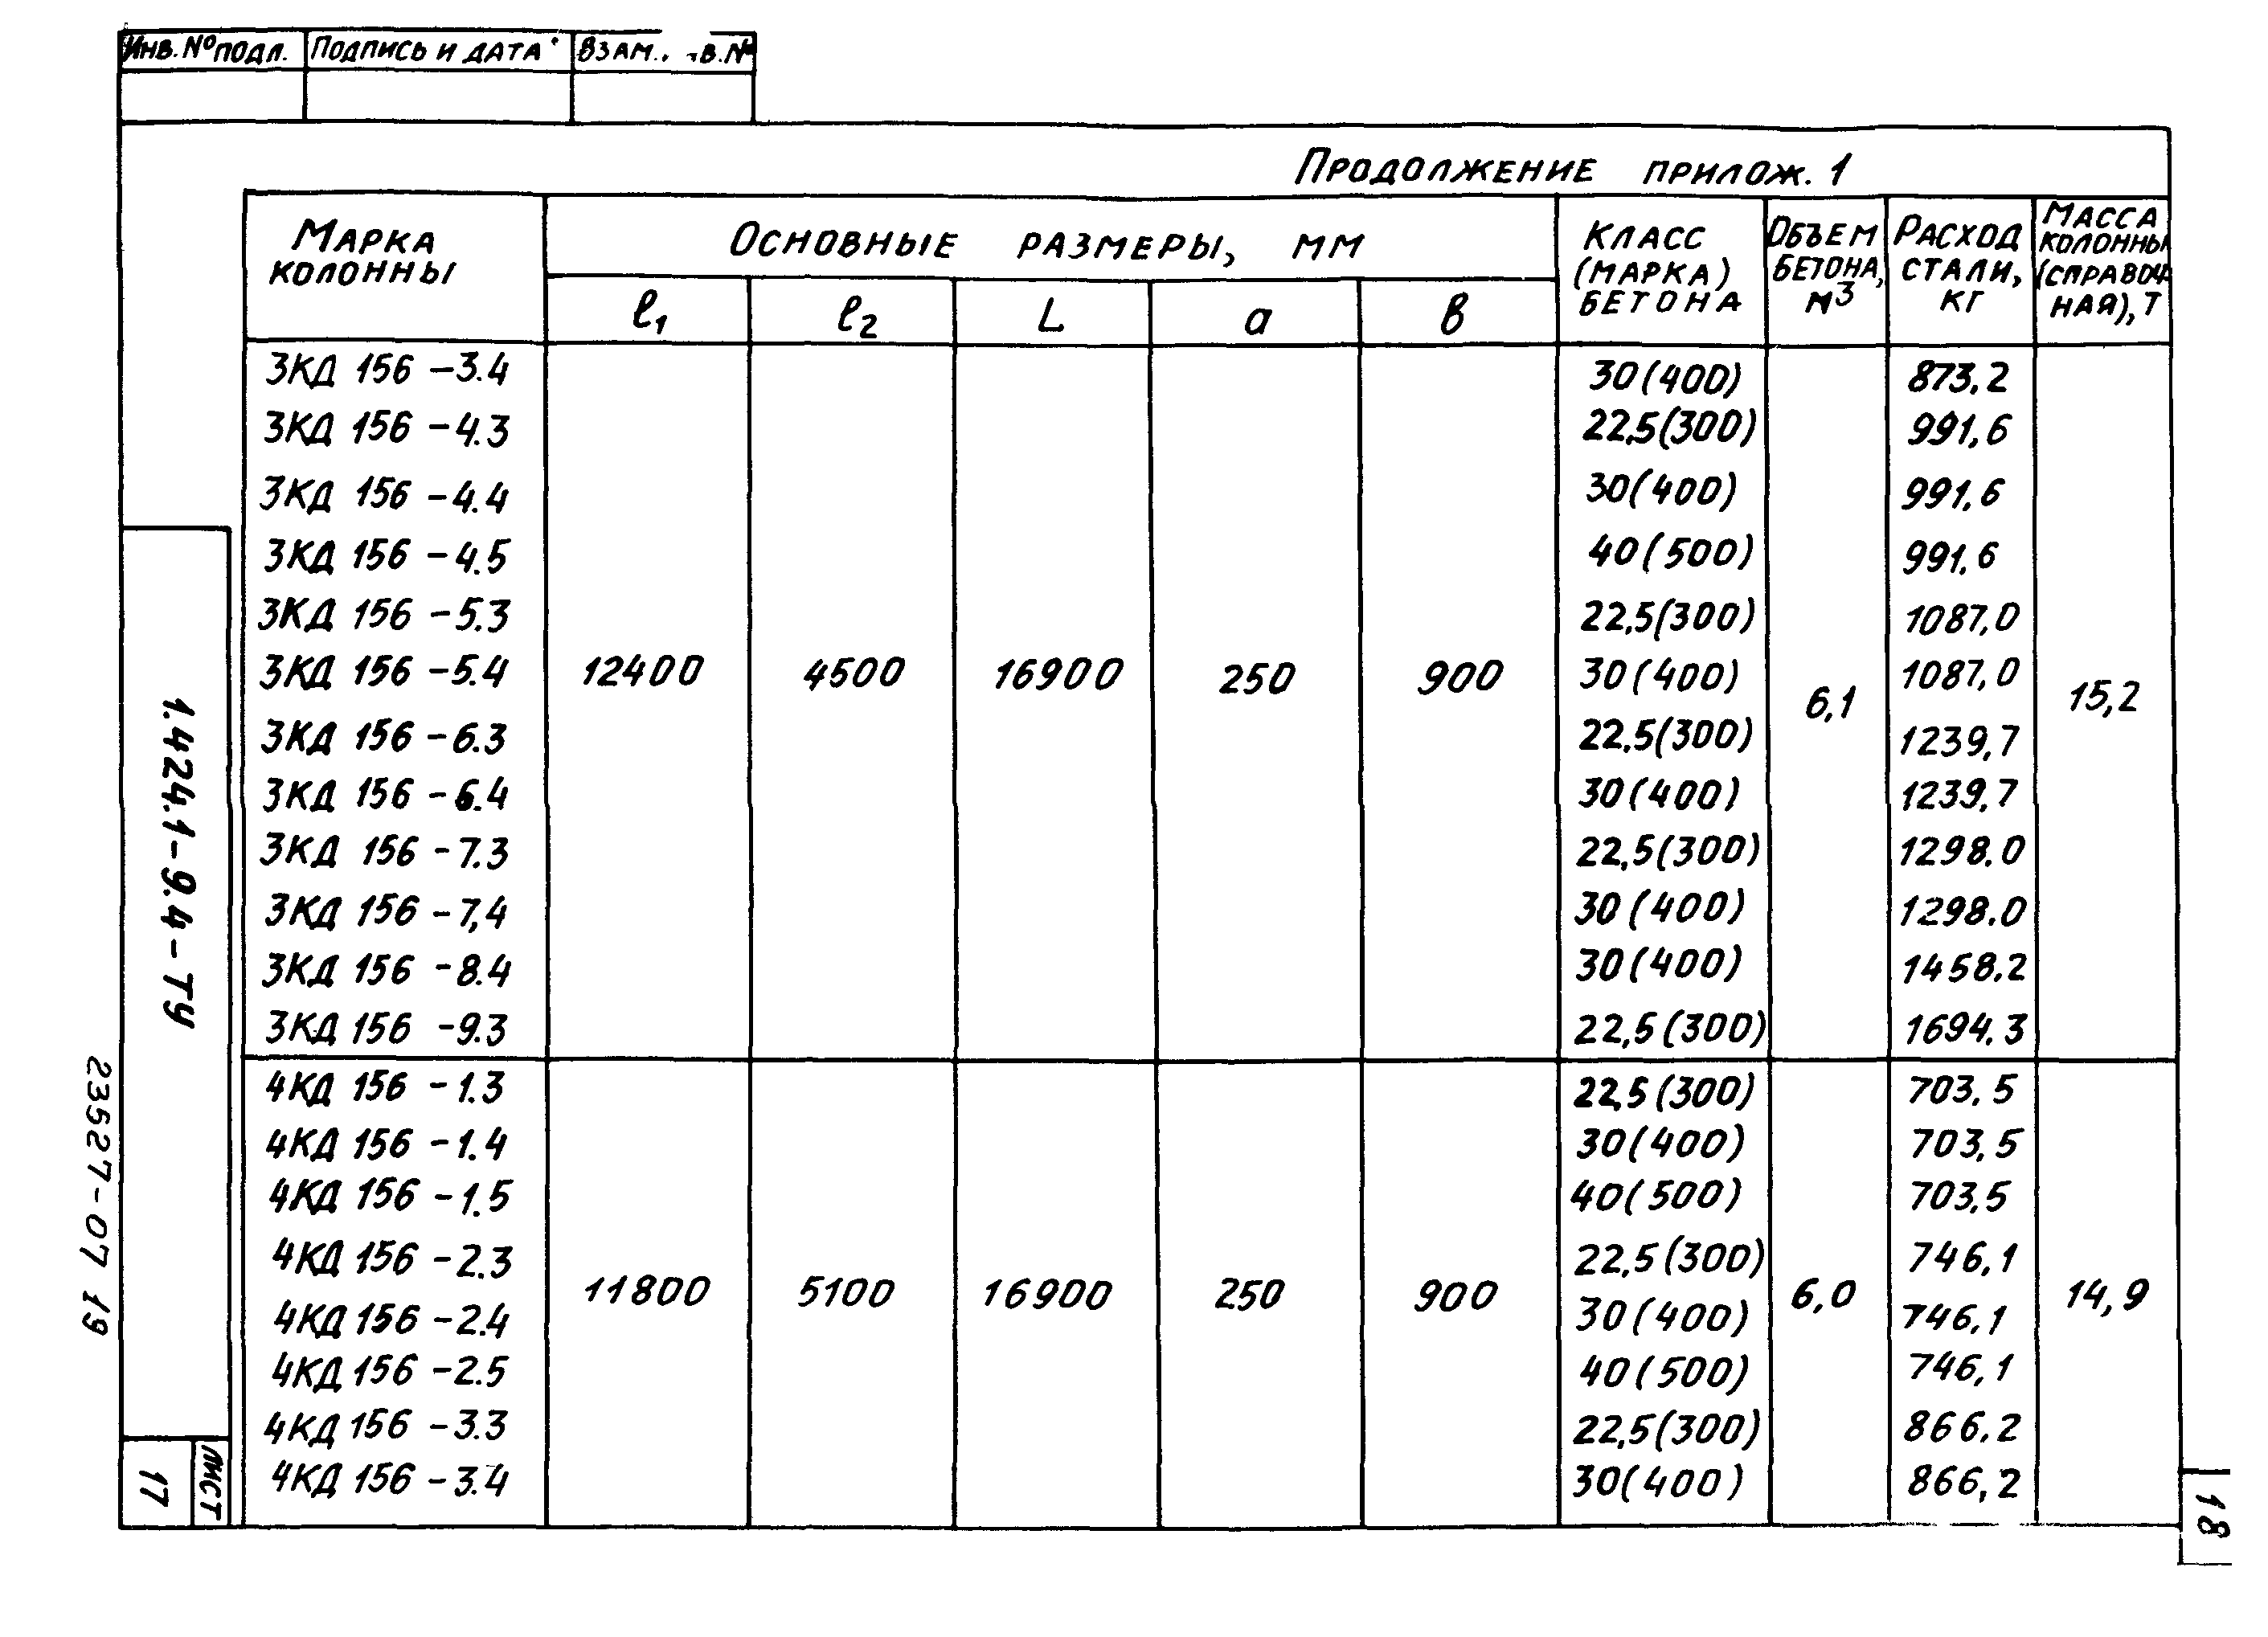 Инв. № подл. Подпись и дата Взам. в. №
Продолжение прилож. 1
Марка колонны Основные размеры, мм Класс (марка) бетона Объем бетона, м³ Расход стали, кг Масса колонны (справочная), т
ℓ₁ ℓ₂ L а в
3КД 156 – 3.4 30(400) 873,2
3КД 156 – 4.3 22,5(300) 991,6
3КД 156 – 4.4 30(400) 991,6
3КД 156 – 4.5 40(500) 991.6
3КД 156 – 5.3 22,5(300) 1087,0
3КД 156 – 5.4 12400 4500 16900 250 900 30(400) 6,1 1087,0 15,2
3КД 156 – 6.3 22,5(300) 1239,7
3КД 156 – 6.4 30(400) 1239,7
3КД 156 – 7.3 22,5(300) 1298.0
3КД 156 – 7,4 30(400) 1298.0
3КД 156 – 8.4 30(400) 1458,2
3КД 156 – 9.3 22,5(300) 1694.3
4КД 156 – 1.3 22,5(300) 703,5
4КД 156 – 1.4 30(400) 703,5
4КД 156 – 1.5 40(500) 703,5
4КД 156 – 2.3 22,5(300) 746,1
4КД 156 – 2.4 11800 5100 16900 250 900 30(400) 6,0 746,1 14,9
4КД 156 – 2.5 40(500) 746,1
4КД 156 – 3.3 22,5(300) 866.2
4КД 156 – 3.4 30(400) 866,2
1.424.1–9.4–ТУ
Лист
17
23527-07 19
18